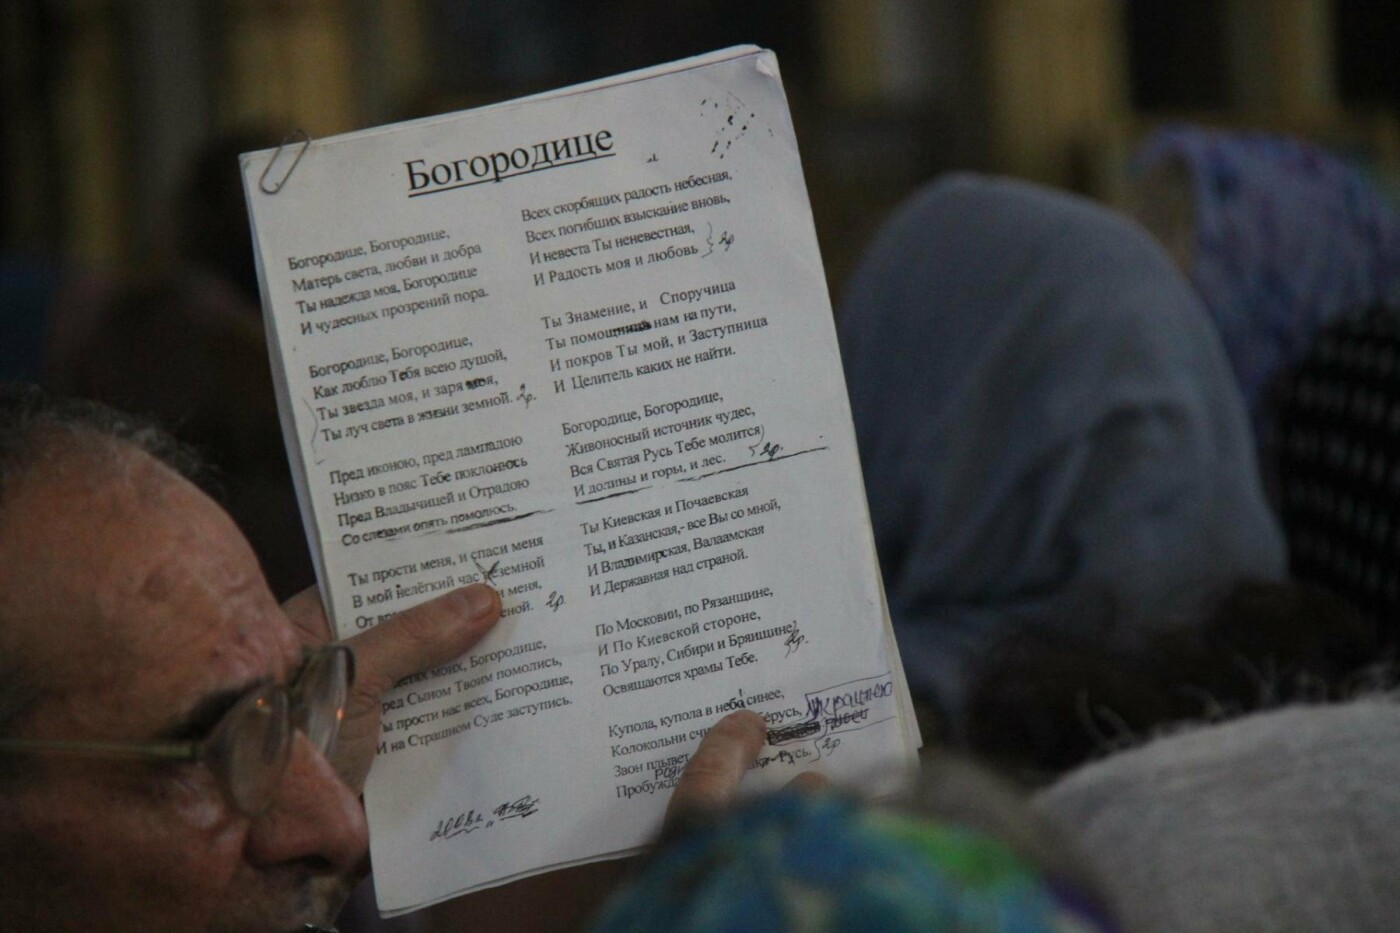 Богородице
Богородице, Богородице,
Матерь света, любви и добра
Ты надежда моя, Богородице
И чудесных прозрений пора.
Богородице, Богородице,
Как люблю Тебя всею душой,
Ты звезда моя, и заря моя,
Ты луч света в жизни земной. 2р.
Пред иконою, пред лампадою
Низко в пояс Тебе поклонюсь
Пред Владычицей и Отрадою
Со слезами опять помолюсь.
Ты прости меня, и спаси меня
В мой нелёгкий час неземной
От меня,
2р.
моих, Богородице,
Сыном Твоим помолись,
прости нас всех, Богородице,
И на Страшном Суде заступись.
2008г.
Всех скорбящих радость небесная,
Всех погибших взыскание вновь,
И невеста Ты неневестная,
И Радость моя и любовь 2р
Ты Знамение, и Споручица
Ты помощница нам на пути,
И покров Ты мой, и Заступница
И Целитель каких не найти.
Богородице, Богородице,
Живоносный источник чудес,
Вся Святая Русь Тебе молится
И долины и горы, и лес. 2р.
Ты Киевская и Почаевская
Ты, и Казанская,- все Вы со мной,
И Владимирская, Валаамская
И Державная над страной.
По Московии, по Рязанщине,
И По Киевской стороне,
По Уралу, Сибири и Брянщине,
Освящаются храмы Тебе. 2р.
Купола, купола в небо синее,
Колокольни
Звон плывет
Русь. 2р